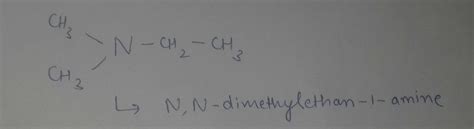 CH3
N-CH2-CH3
CH3
↳ N,N-dimethylethan-1-amine